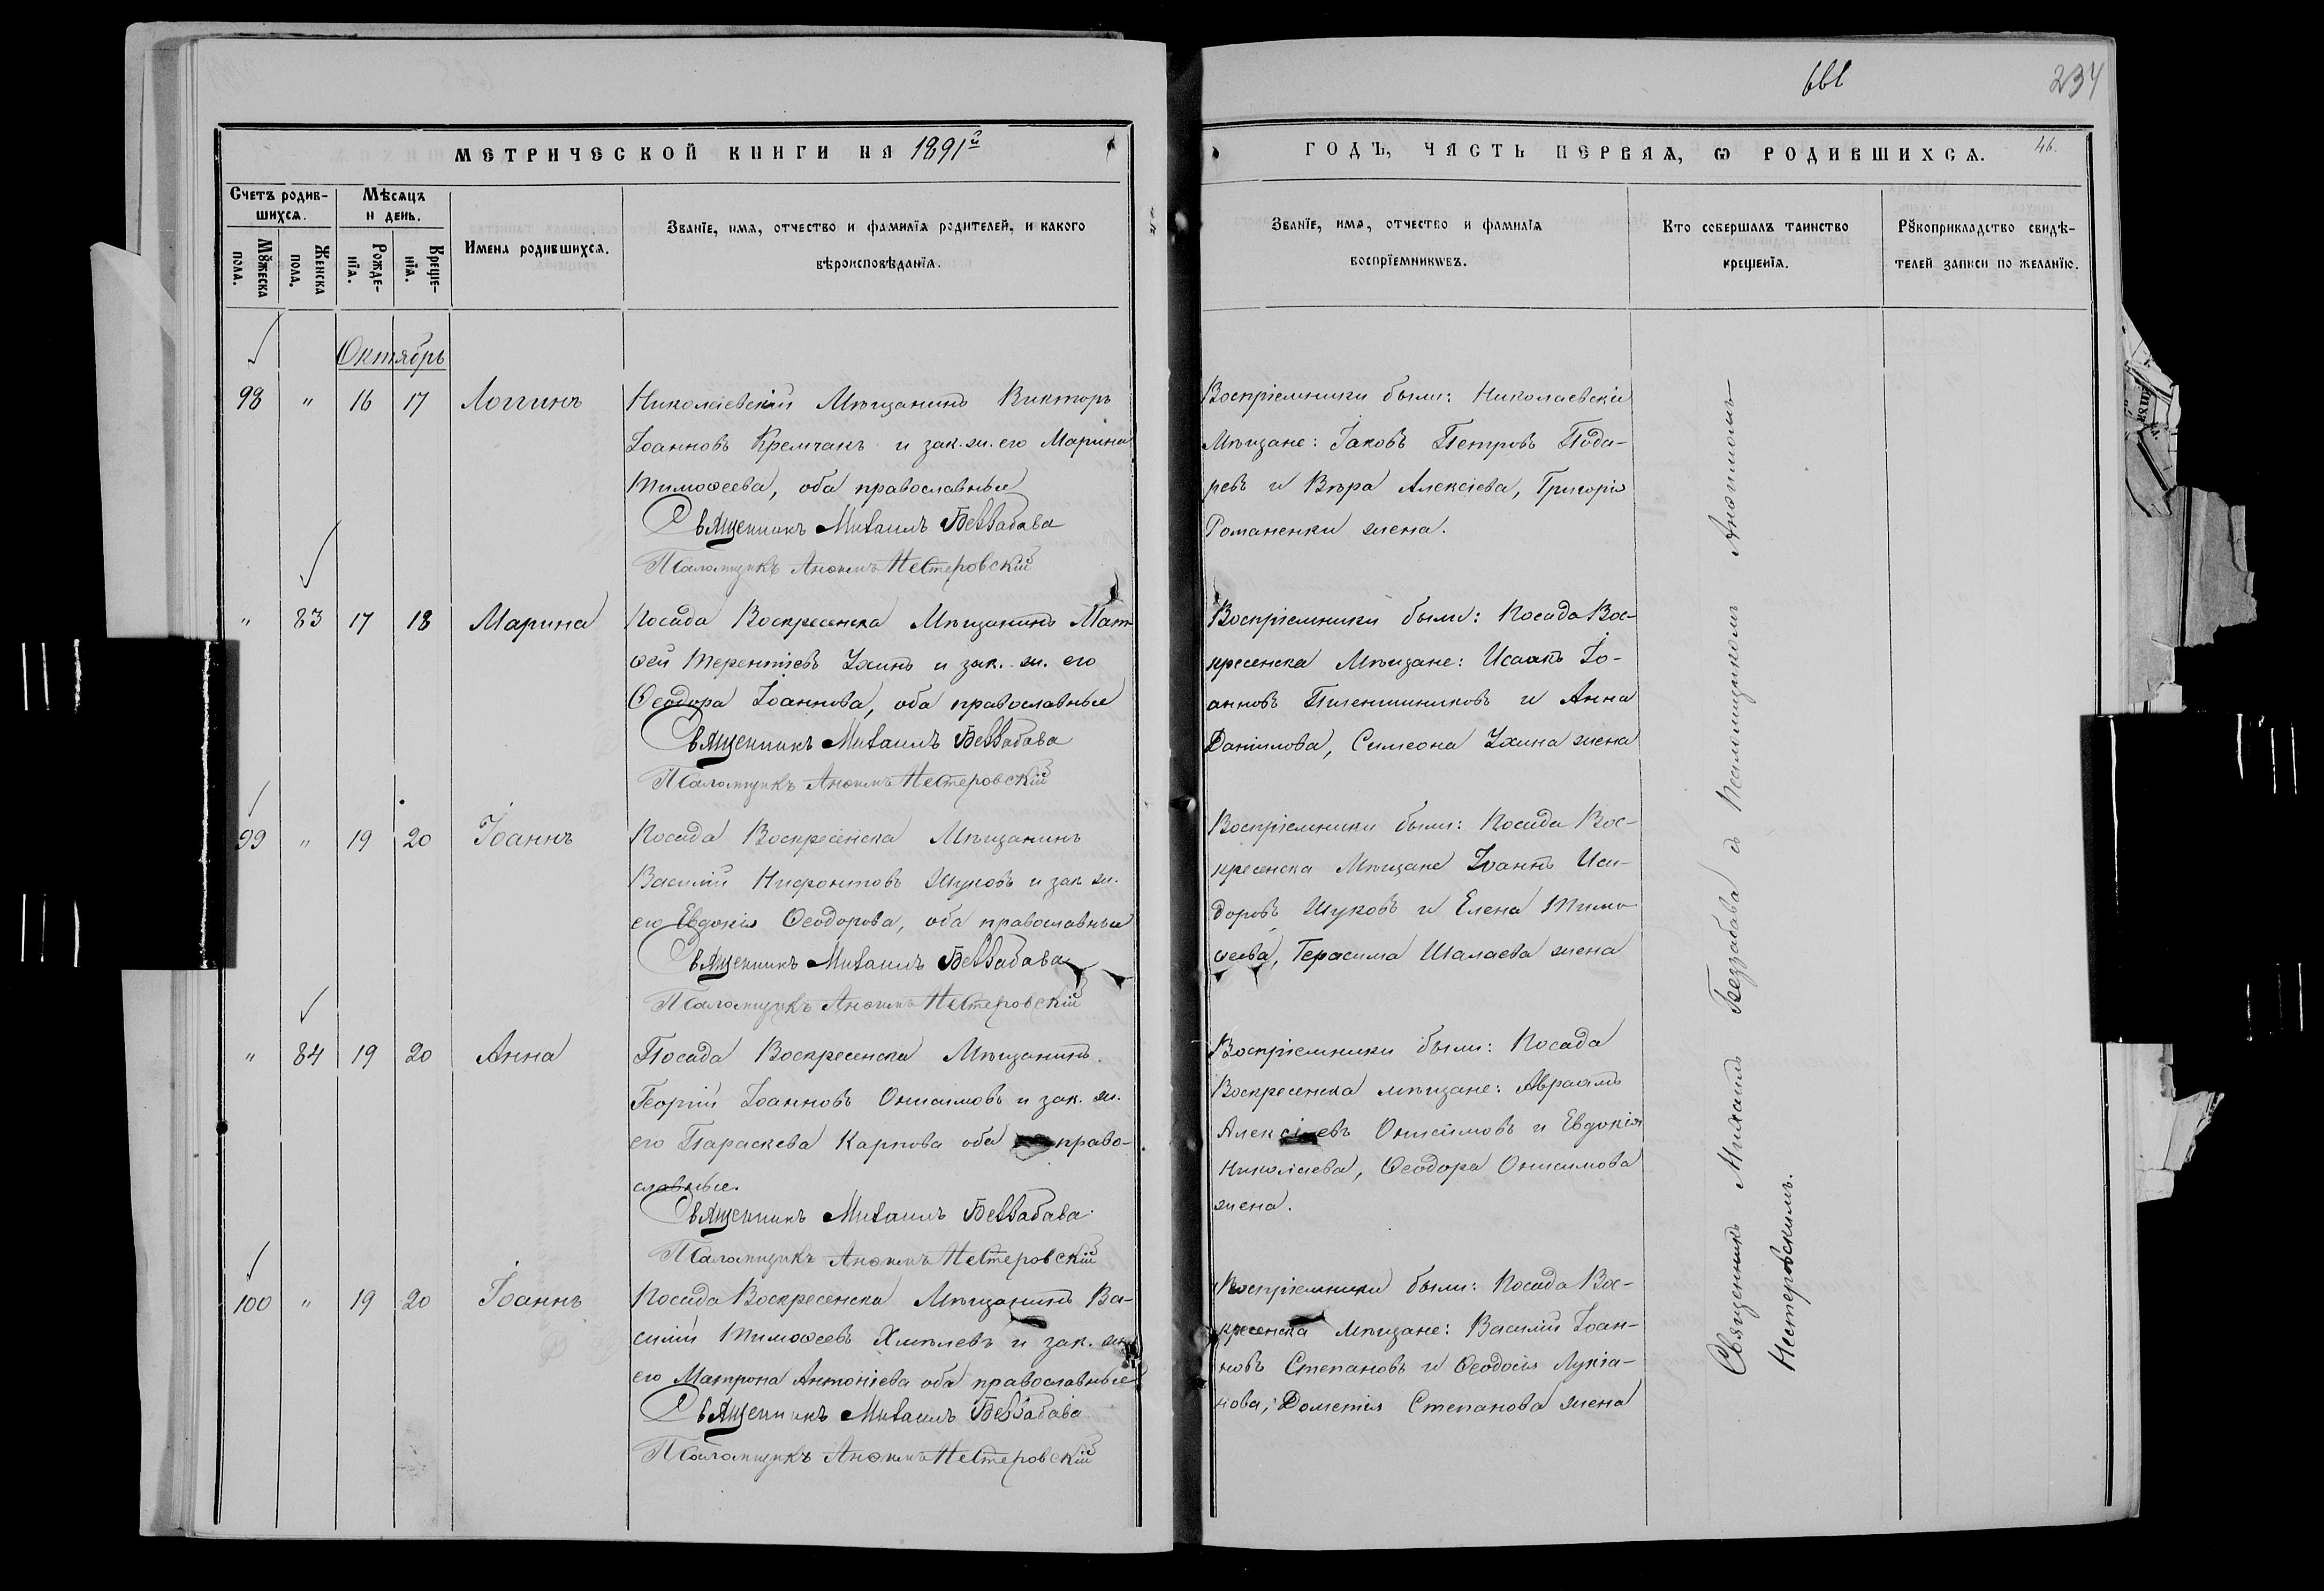 661
234
МЕТРИЧЕСКОЙ КНИГИ НА 1891й
ГОДЪ, ЧАСТЬ ПЕРВАЯ, Ѡ РОДИВШИХСѦ.
46.
Счетъ родив-
шихсѧ.
Мѣсѧцъ
и день.
Мꙋжеска
пола.
Женска
пола.
Рожде-
нїѧ.
Креще-
нїѧ.
Имена родившихсѧ.
Званїе, имѧ, отчество и фамилїѧ родителей, и какого
вѣроисповѣданїѧ.
Званїе, имѧ, отчество и фамилїѧ
воспрїемникѡвъ.
Кто совершалъ таинство
крещенїѧ.
Рꙋкоприкладство свидѣ-
телей записи по желанїю.
Октябрь
98 " 16 17 Логгинъ
Николаевскій Мѣщанинъ Викторъ
Іоанновъ Кремчакъ и зак. ж. его Марина
Тимоѳеева, оба православные
Священникъ Михаилъ Беззабава
Псаломщикъ Анѳимъ Нестеровскій
Воспріемники были: Николаевскіе
Мѣщане: Іаковъ Петровъ Пода-
ревъ и Вѣра Алексіева, Григорія
Романенки жена.
" 83 17 18 Марина
Посада Воскресенска Мѣщанинъ Мат-
ѳей Терентіевъ Ухинъ и зак. ж. его
Ѳеодора Іоаннова, оба православные
Священникъ Михаилъ Беззабава
Псаломщикъ Анѳимъ Нестеровскій
Воспріемники были: Посада Вос-
кресенска Мѣщане: Исаакъ Іо-
анновъ Пшеничниковъ и Анна
Даніилова, Симеона Ухина жена
99 " 19 20 Іоаннъ
Посада Воскресенска Мѣщанинъ
Василій Нифонтовъ Шуковъ и зак ж.
его Евдокія Ѳеодорова, оба православные
Священникъ Михаилъ Беззабава
Псаломщикъ Анѳимъ Нестеровскій
Воспріемники были: Посада Вос-
кресенска Мѣщане Іоаннъ Иси-
доровъ Шуковъ и Елена Тимо
ѳеева, Герасима Шалаева жена
" 84 19 20 Анна
Посада Воскресенска Мѣщанинъ
Георгій Іоанновъ Онисимовъ и зак. ж.
его Параскева Карпова оба право-
славные.
Священникъ Михаилъ Беззабава
Псаломщикъ Анѳимъ Нестеровскій
Воспріемники были: Посада
Воскресенска мѣщане: Авраамъ
Алексіевъ Онисимовъ и Евдокія
Николаева, Ѳеодора Онисимова
жена.
100 " 19 20 Іоаннъ
Посада Воскресенска Мѣщанинъ Ва-
силій Тимоѳеевъ Хмѣлевъ и зак. ж.
его Матрона Антоніева оба православные
Священникъ Михаилъ Беззабава
Псаломщикъ Анѳимъ Нестеровскій
Воспріемники были: Посада Вос-
кресенска Мѣщане: Василій Іоан-
новъ Степановъ и Ѳеодосія Лукіа-
нова, Дометія Степанова жена
Священникъ Михаилъ Беззабава съ Псаломщикомъ Анѳимомъ
Нестеровскимъ.